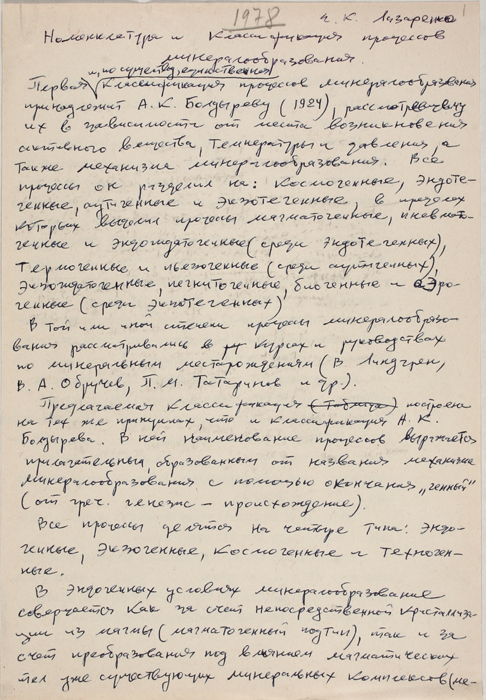 1978
Е. К. Лазаренко
Номенклатура и классификация процессов
минералообразования.
и, по существу, единственная
Первая классификация процессов минералообразования
принадлежит А. К. Болдыреву (1924), рассмотревшему
их в зависимости от места возникновения
активного вещества, температуры и давления, а
также механизма минералообразования. Все
процессы он разделил на: космогенные, эндоге-
генные, и экзотегенные, в пределах
которых выделил процессы магматогенные, пневмато-
генные и (среди эндотегенных),
термогенные и пьезогенные (среди),
биогенные и аэро-
генные (среди экзотегенных).
В той или иной степени процессы минералообразо-
вания рассматривались в курсах и руководствах
по минеральным месторождениям (В. Линдгрен,
В. А. Обручев, П. М. Татаринов и др.).
Предлагаемая классификация (Таблица) построена
на тех же принципах, что и классификация А. К.
Болдырева. В ней наименование процессов выражается
прилагательным, образованным от названия механизма
минералообразования с помощью окончания „генный"
(от греч. генезис – происхождение).
Все процессы делятся на четыре типа: эндо-
генные, экзогенные, космогенные и техноген-
ные.
В эндогенных условиях минералообразование
совершается как за счет непосредственной кристаллиза-
ции из магмы (магматогенный подтип), так и за
счет преобразования под влиянием магматических
тел уже существующих минеральных комплексов (ме-